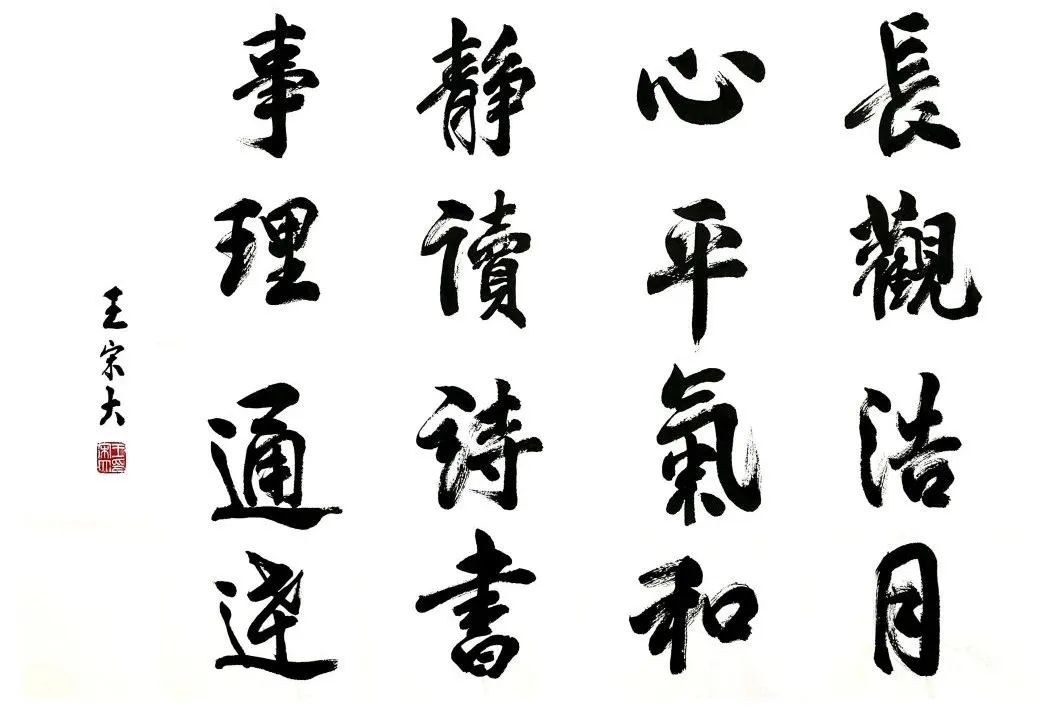 長觀浩月
心平氣和
靜讀詩書
事理通達
王宗大